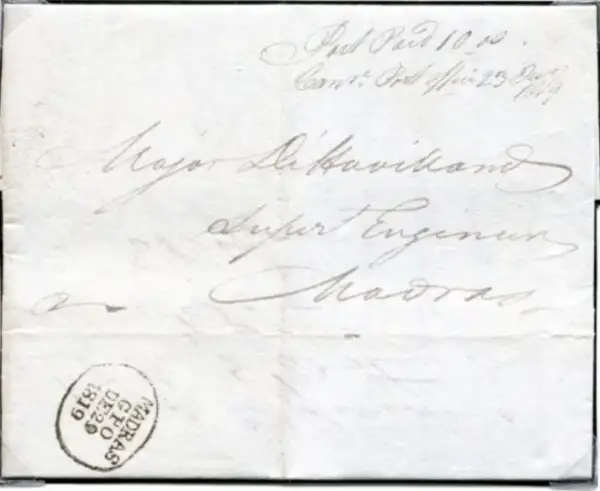 Post Paid 10 as.
Cannr. Post office 23 Decr
1819
Major De Havilland
Supert Engineer
Madras
MADRAS
GPO
DE 29
1819